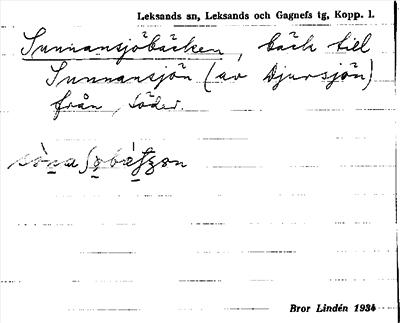 Leksands sn, Leksands och Gagnefs tg, Kopp. l.
Sunnansjöbäcken, bäck till
Sunnansjön (av Djursjön)
från söder.
Bror Lindén 1934